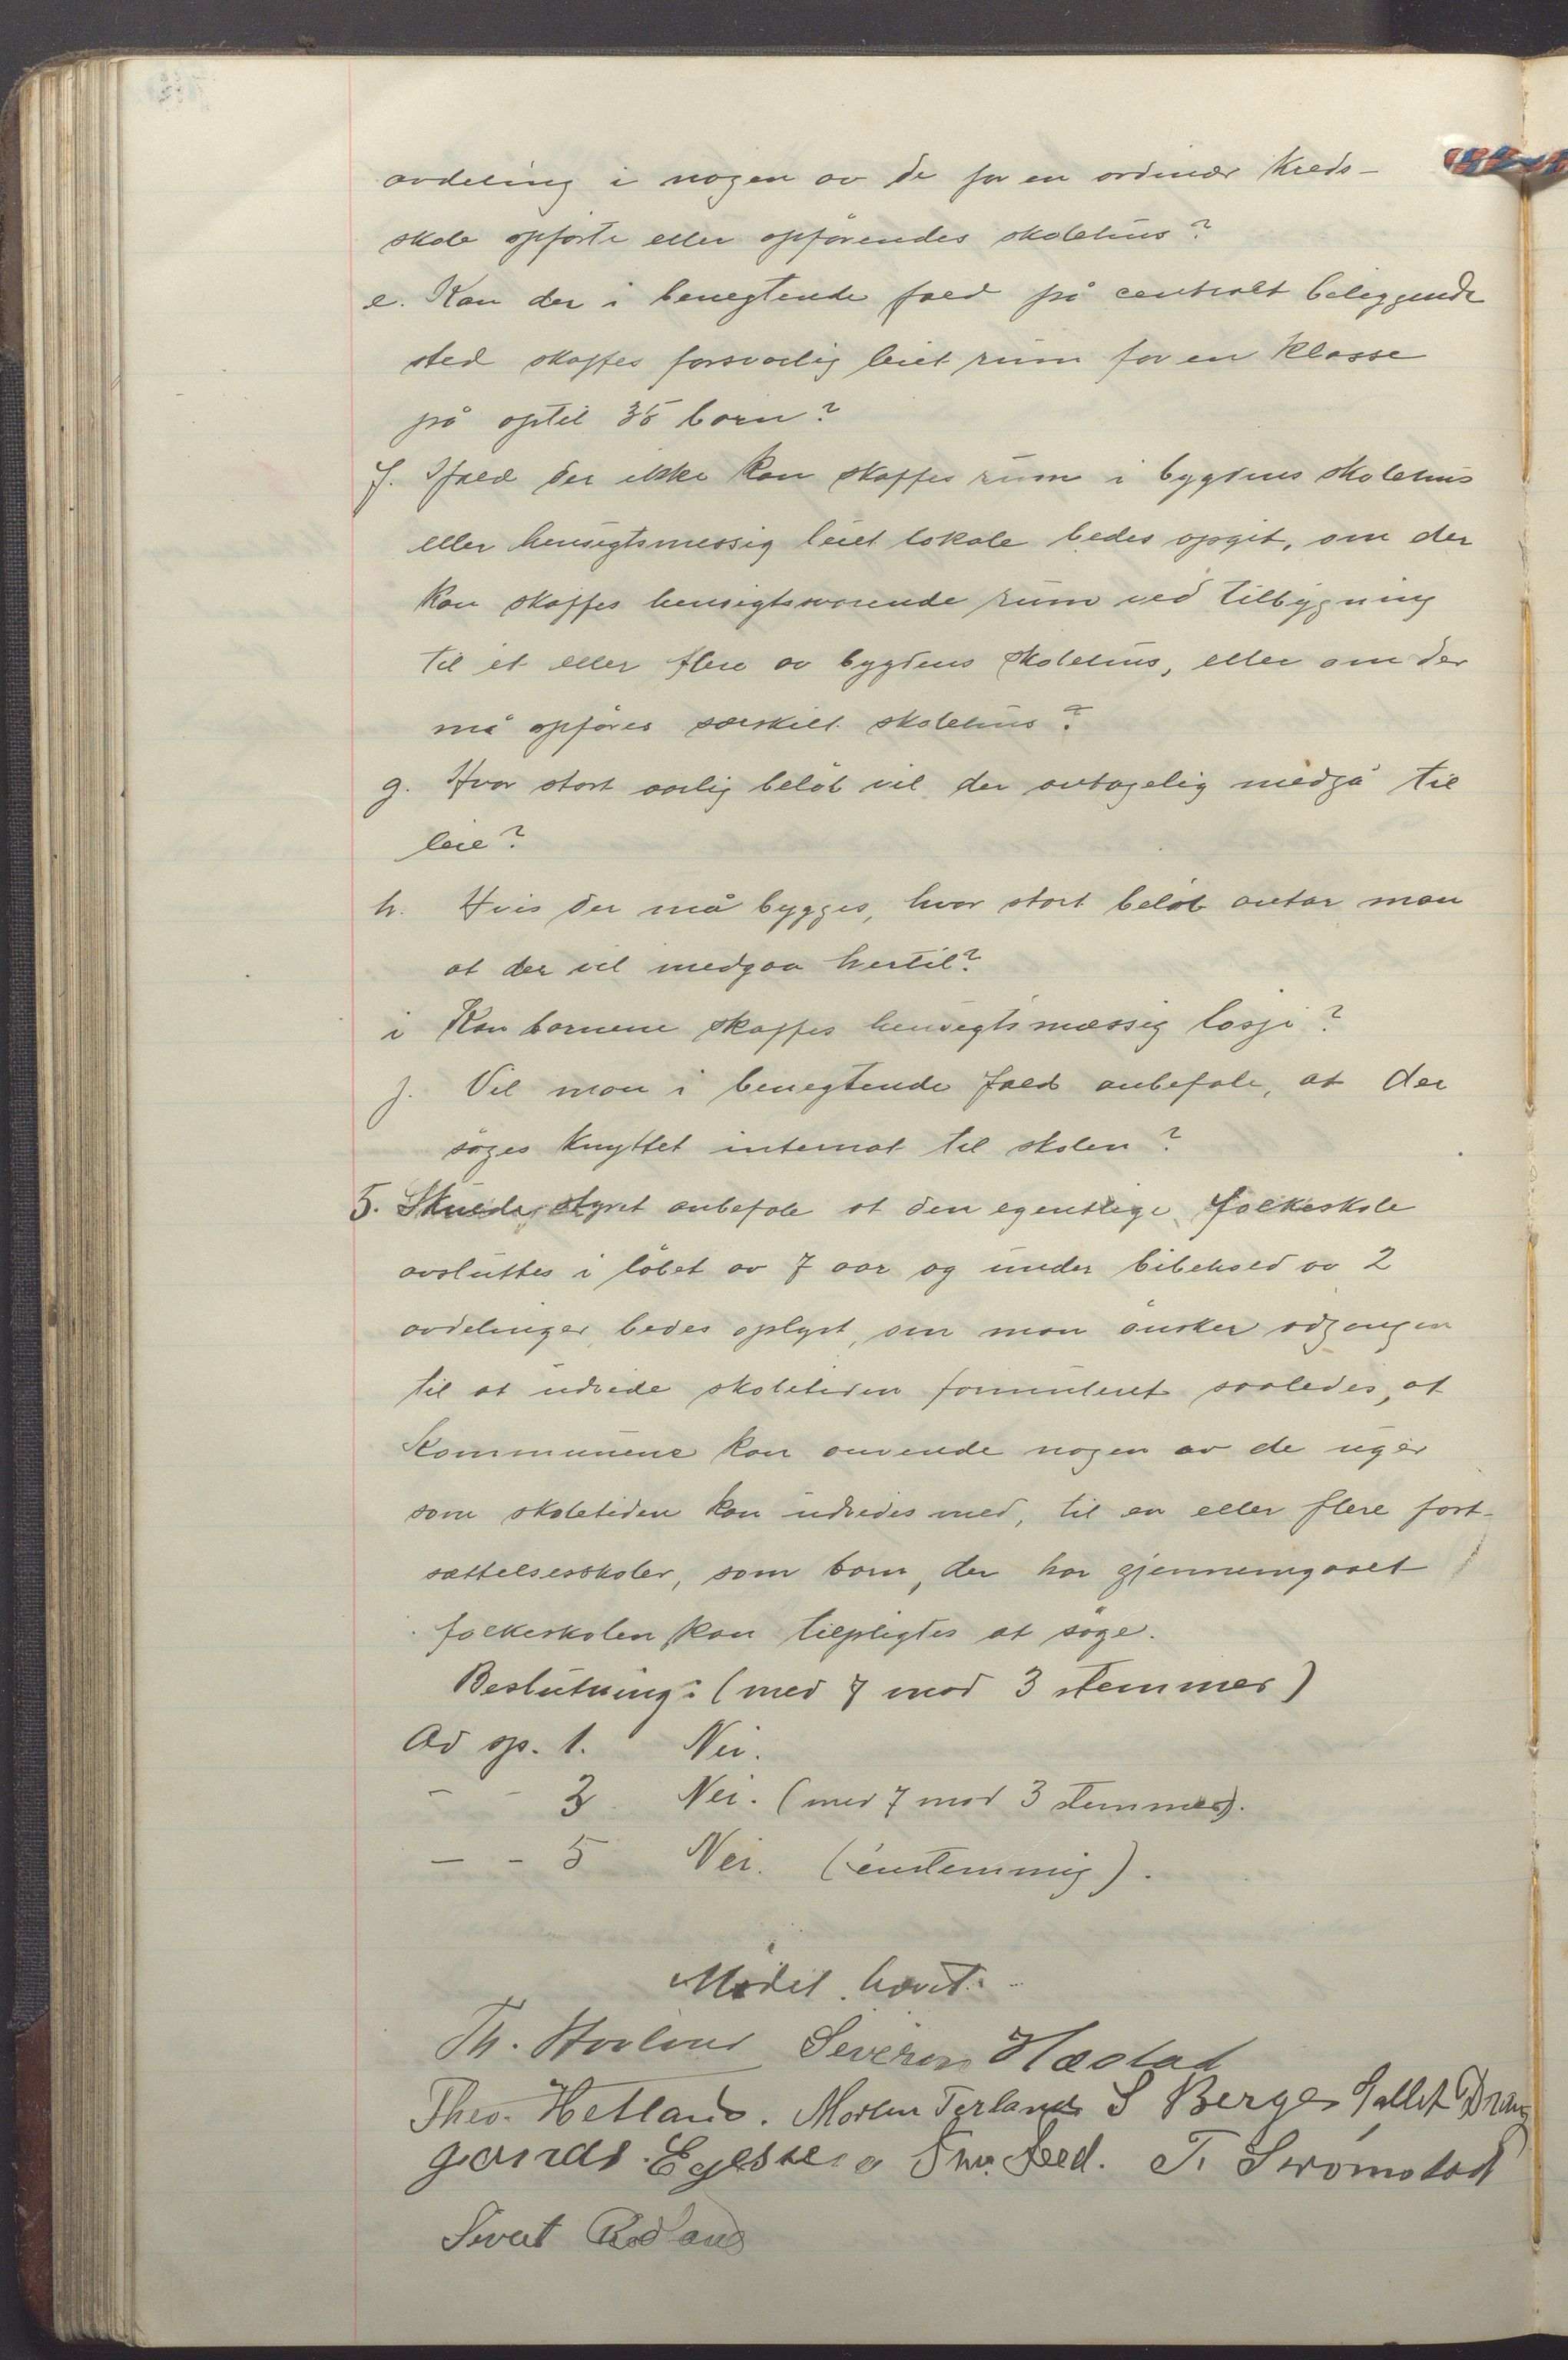 avdeling i nogen av de for en ordinær kreds-
skole opførte eller opførendes skolehus?
e. Kan der i benegtende fald på centralt beliggende
sted skaffes forsvarlig leiet rum for en klasse
på optil 35 born?
f. Ifald der ikke kan skaffes rum i bygdens skolehus
eller hensigtsmessig leiet lokale bedes opgit, om der
kan skaffes hensigtssvarende rum ved tilbygning
til et eller flere av bygdens skolehus, eller om der
må opføres særskilt skolehus?
g. Hvor stort aarlig beløb vil der antagelig medgå til
leie?
h. Hvis der må bygges, hvor stort beløb antar man
at der vil medgaa hertil?
i Kan barnene skaffes hensigtsmæssig losji?
j. Vil man i benegtende fald anbefale, at der
søges knyttet internat til skolen?
5. styret anbefale at den egentlige folkeskole
avsluttes i løbet av 7 aar og under bibehold av 2
avdelinger, bedes oplyst, om man ønsker adgangen
til at udvide skoletiden formuleret saaledes, at
kommunene kan anvende nogen av de uger
som skoletiden kan udvides med, til en eller flere fort-
sættelsesskoler, som barn, der har gjennemgaaet
folkeskolen kan tilpligtes at søge.
Beslutning: (med 7 mod 3 stemmer)
Ad sp. 1. Nei.
- - 3 Nei. (med 7 mod 3 stemmer).
- - 5 Nei. (enstemmig).
Mødet hævet.
Th. Severin Hæstad
Theo. Hetland. Morten Terland S Berge Sallet Drang
Egessen T. Strømstad
Sivert Rodland